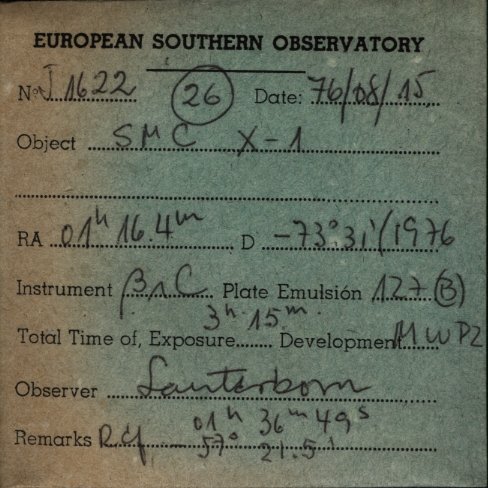 EUROPEAN SOUTHERN OBSERVATORY
No J 1622 (26) Date: 76/08/15
Object SMC X-1
RA 01h 16.4m D -73° 31'/1976
Instrument Plate Emulsión 127 (B)
3h 15m
Total Time of, Exposure Development MWP2
Observer Lauterborn
01h 36m 49s
Remarks Ref - 57° 21.5'